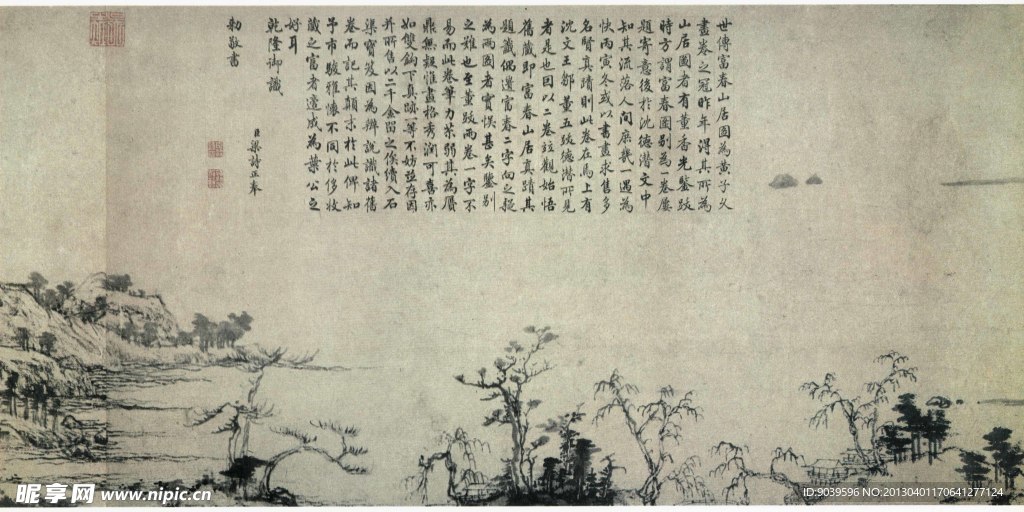 世傳富春山居圖為黃子久
畫卷之冠昨年得其所為
山居圖者有董香光鑒跋
時方謂富春圖別為一卷屢
題寄意後於沈德潛文中
知其流落人間庶幾一遇為
快丙寅冬或以書畫求售多
名賢真蹟則此卷在焉上有
沈文王鄒董五跋德潛所見
者是也因以二卷竝觀始悟
舊藏即富春山居真蹟其
題籤偶遺富春二字向之疑
為兩圖者實悞甚矣鑒別
之難也至董跋兩卷一字不
易而此卷筆力苶弱其為贋
鼎無疑惟畫格秀潤可喜亦
如雙鉤下真跡一等不妨竝存因
並所售以二千金留之俟續入石
渠寶笈因為辨說識諸舊
卷而記其顛末於此俾知
予市駿雅懷不同於侈收
藏之富者遂成為葉公之
好耳
乾隆御識
臣梁詩正奉
勅敬書
昵享网 www.nipic.cn
ID:9039596 NO:20130401170641277124